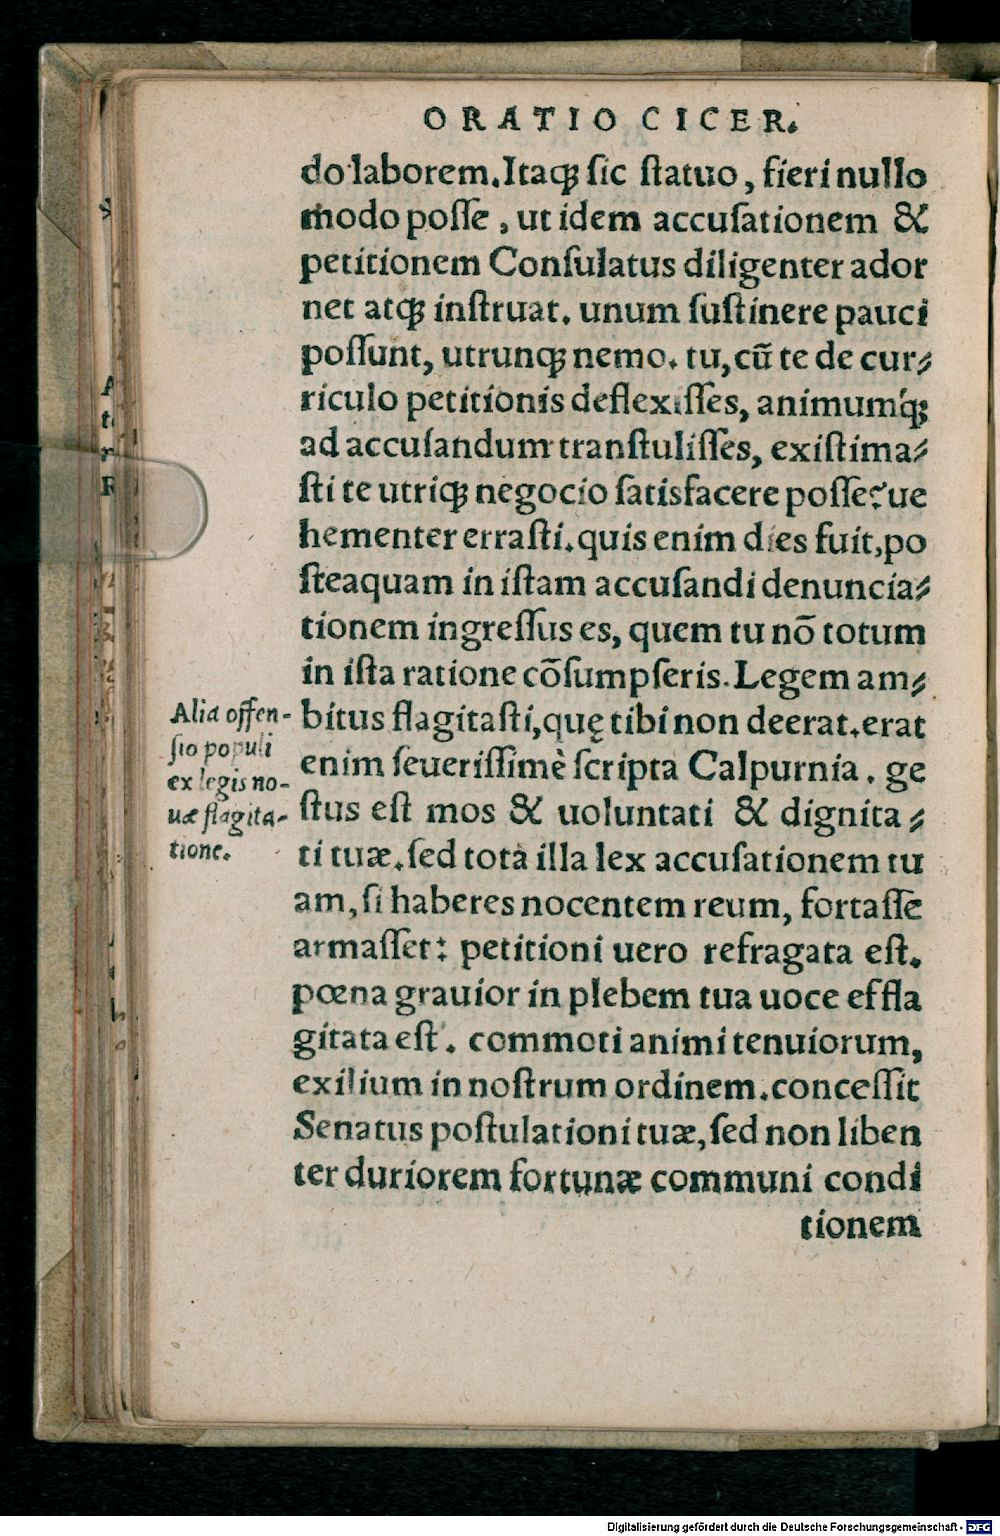 ORATIO CICER.
do laborem. Itaqꝫ ſic ſtatuo, fieri nullo
modo poſſe, ut idem accuſationem &
petitionem Conſulatus diligenter ador
net atqꝫ inſtruat. unum ſuſtinere pauci
poſſunt, utrunqꝫ nemo. tu, cū te de cur⸗
riculo petitionis deflexiſſes, animumq́ꝫ
ad accuſandum tranſtuliſſes, exiſtima⸗
ſti te utriqꝫ negocio ſatisfacere poſſe? ue
hementer erraſti. quis enim dies fuit, po
ſteaquam in iſtam accuſandi denuncia⸗
tionem ingreſſus es, quem tu nō totum
in iſta ratione cōſumpſeris. Legem am⸗
bitus flagitaſti, quę tibi non deerat. erat
enim ſeueriſſimè ſcripta Calpurnia. ge
ſtus eſt mos & uoluntati & dignita⸗
ti tuæ. ſed tota illa lex accuſationem tu
am, ſi haberes nocentem reum, fortaſſe
armaſſet: petitioni uero refragata eſt.
pœna grauior in plebem tua uoce effla
gitata eſt. commoti animi tenuiorum,
exilium in noſtrum ordinem. conceſſit
Senatus poſtulationi tuæ, ſed non liben
ter duriorem fortunæ communi condi
tionem
Alia offen-
ſio populi
ex legis no-
uæ flagita-
tione.
Digitalisierung gefördert durch die Deutsche Forschungsgemeinschaft - DFG